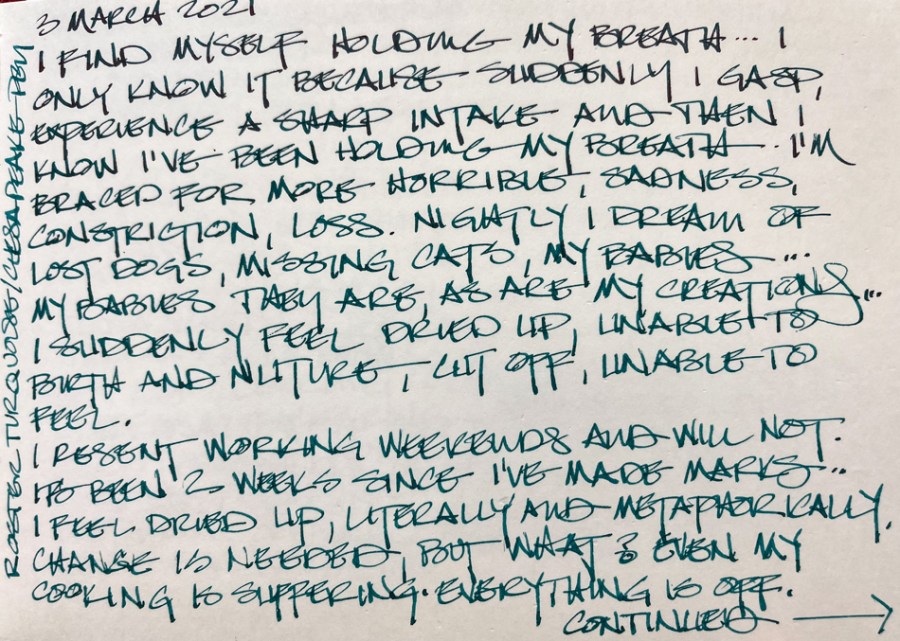 3 MARCH 2021
I FIND MYSELF HOLDING MY BREATH... I
ONLY KNOW IT BECAUSE SUDDENLY I GASP,
EXPERIENCE A SHARP INTAKE AND THEN I
KNOW I'VE BEEN HOLDING MY BREATH. I'M
BRACED FOR MORE HORRIBLE, SADNESS,
CONSTRICTION, LOSS. NIGHTLY I DREAM OF
LOST DOGS, MISSING CATS, MY BABIES ...
MY BABIES THEY ARE, AS ARE MY CREATIONS...
I SUDDENLY FEEL DRIED UP, UNABLE TO
BIRTH AND NUTURE, CUT OFF, UNABLE TO
FEEL.
I RESENT WORKING WEEKENDS AND WILL NOT.
ITS BEEN 2 WEEKS SINCE I'VE MADE MARKS..
I FEEL DRIED UP, LITERALLY AND METAPHORICALLY.
CHANGE IS NEEDED, BUT WHAT? EVEN MY
COOKING IS SUFFERING. EVERYTHING IS OFF.
CONTINUED →
ROOSTER TURQUOISE/CHESAPEAKE PEN